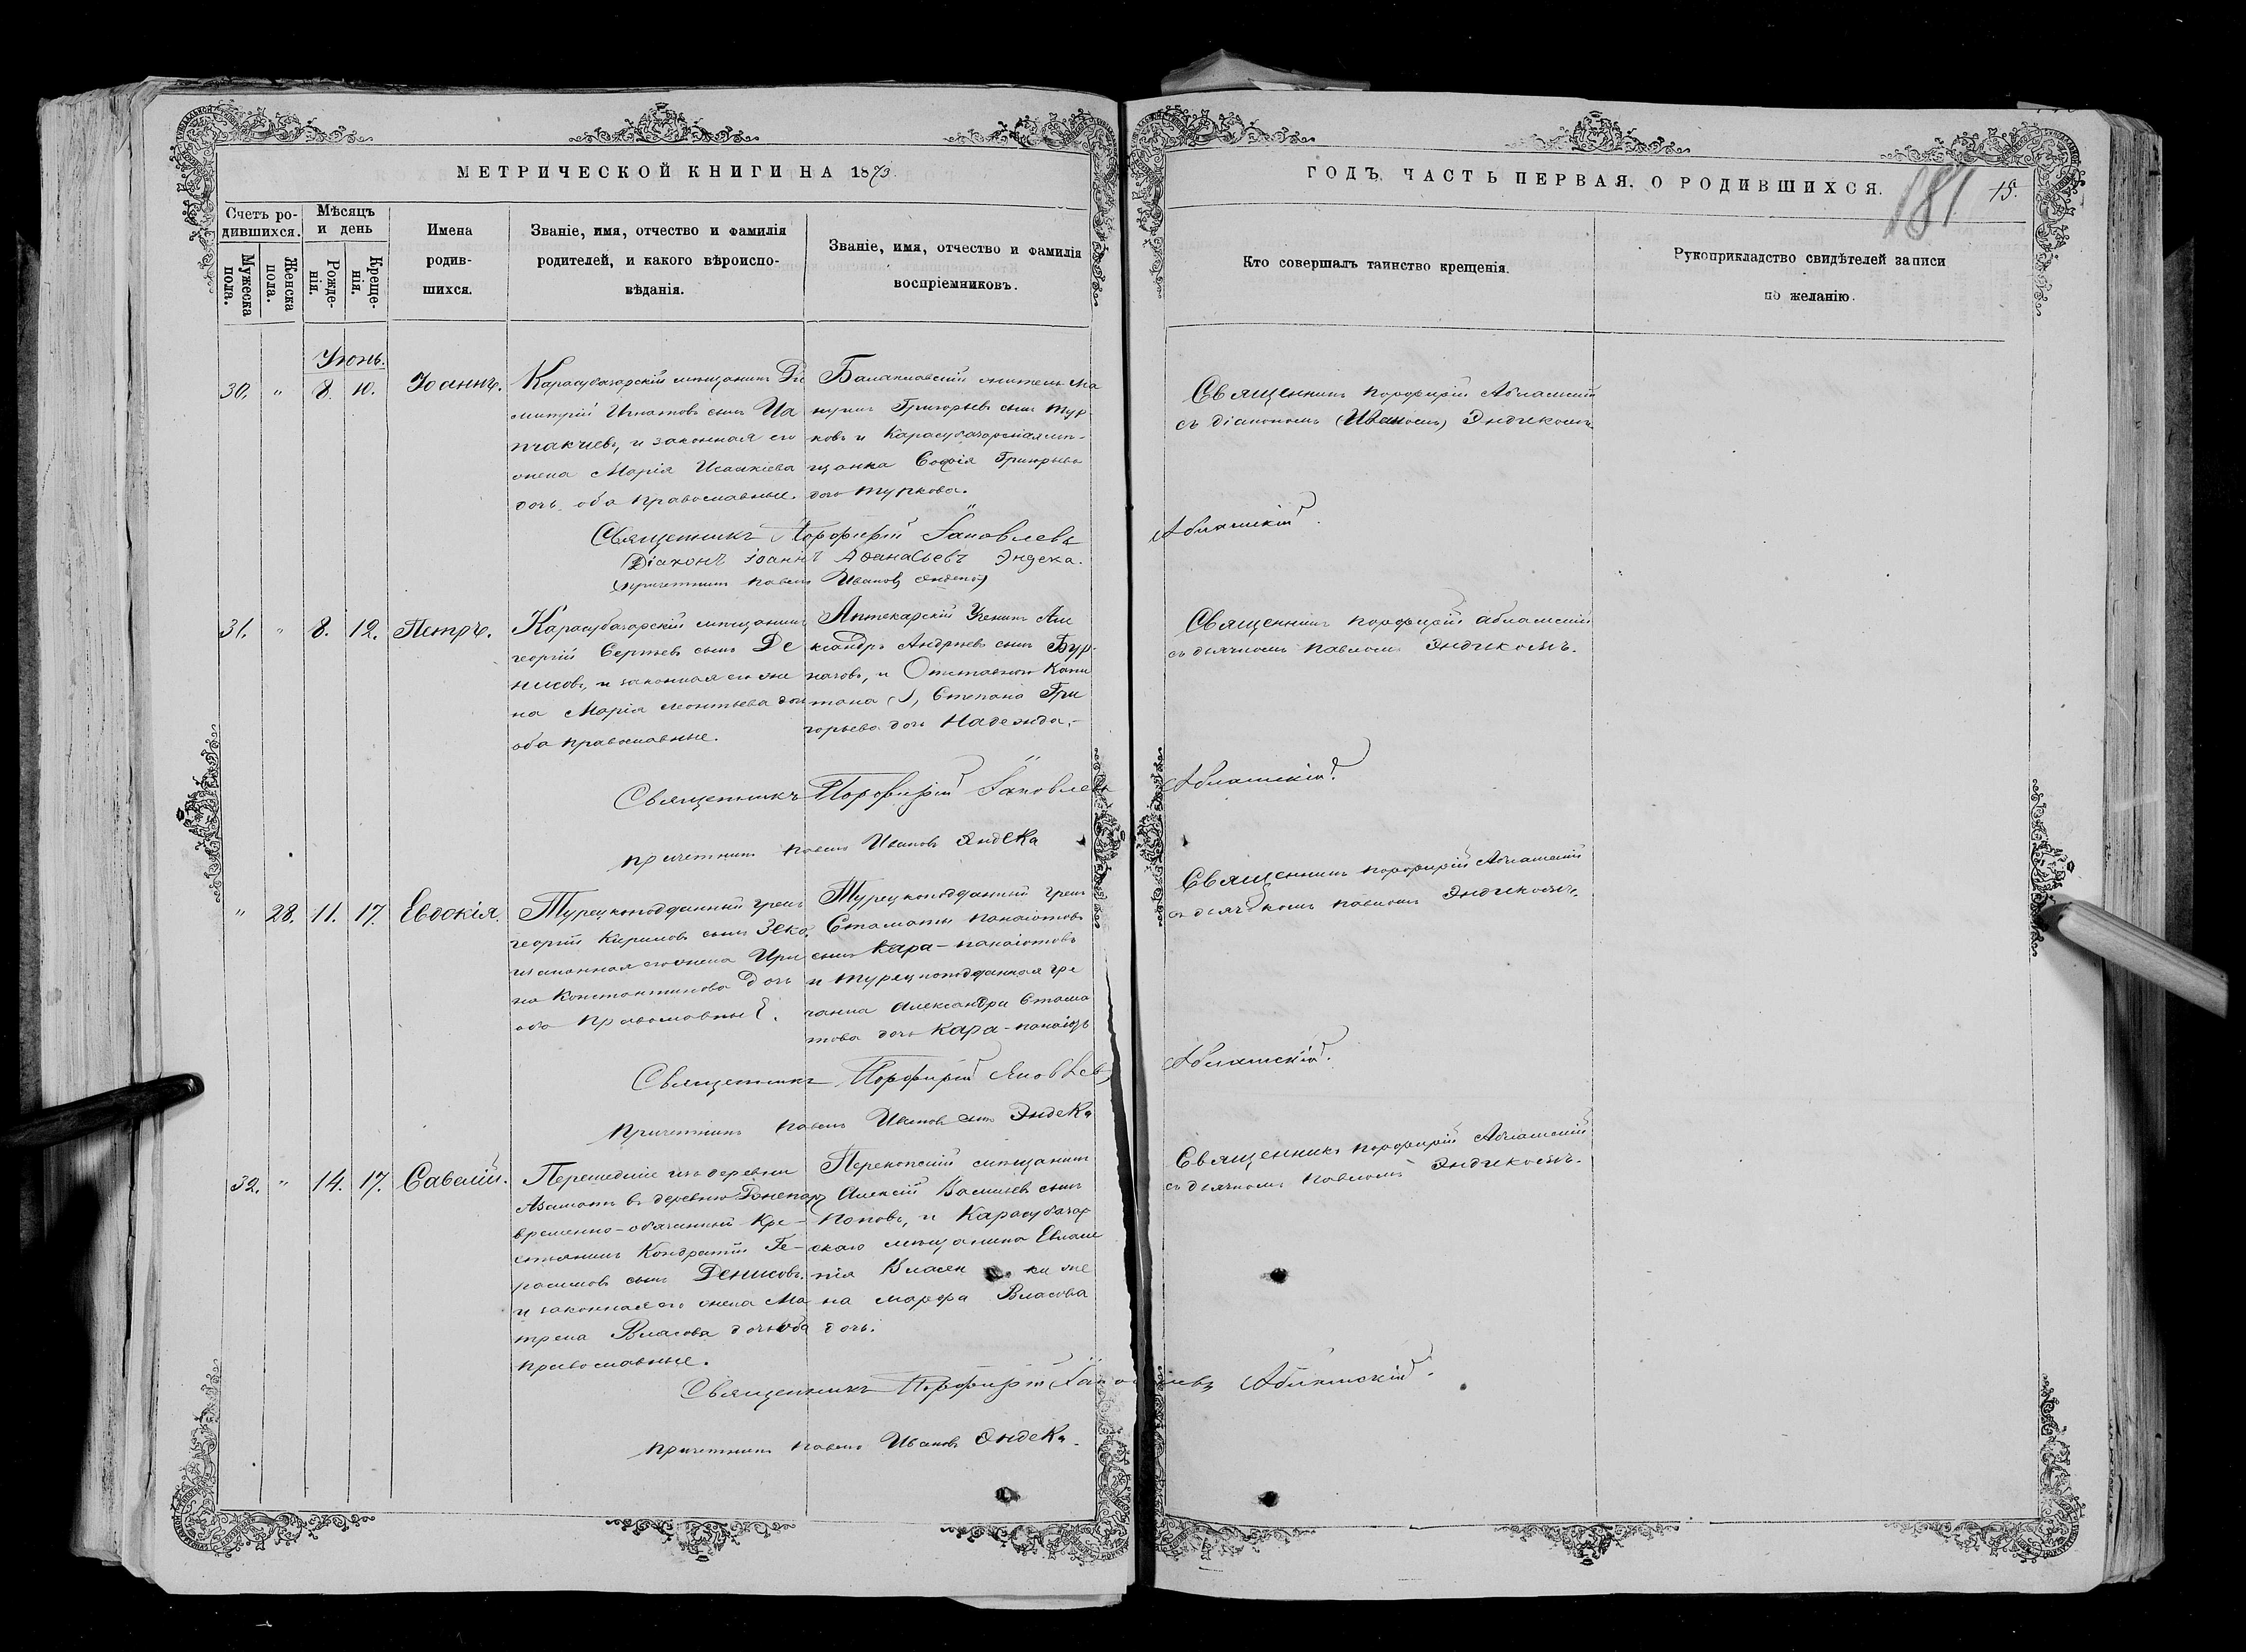 МЕТРИЧЕСКОЙ КНИГИ НА 1873.
Счетъ ро-
дившихся.
Мужеска пола.
Женска пола.
Мѣсяцъ
и день
Рожде-
нія.
Креще-
нія.
Имена
родив-
шихся.
Званіе, имя, отчество и фамилія
родителей, и какого вѣроиспо-
вѣданія.
Званіе, имя, отчество и фамилія
воспріемниковъ.
ГОДЪ, ЧАСТЬ ПЕРВАЯ. О РОДИВШИХСЯ.
181 15.
Кто совершалъ таинство крещенія.
Рукоприкладство свидѣтелей записи
по желанію.
Іюнь.
30. " 8. 10. Іоаннъ.
Карасубазарскій мѣщанинъ Ди
митрій Игнатовъ сынъ Ча
пчакчіевъ, и законная его
жена Марія Исаакіева
дочь, оба православные.
Балаклавскій житель Ма
нуилъ Григорьевъ сынъ Тур-
ковъ и Карасубазарская мѣ-
щанка Софія Григорьева
дочь Туркова.
Священникъ Порфирій Аблашскій
съ діакономъ (Иваномъ) Эндикомъ
Священникъ Порфирій Яковлевъ Аблашскій.
Діаконъ Іоаннъ Афанасьевъ Эндека.
Причетникъ Павелъ Ивановъ Эндека
31. " 8. 12. Петръ.
Карасубазарскій мѣщанинъ
Георгій Сергѣевъ сынъ Де
нисовъ, и законная его же
на Марія Леонтьева дочь
оба православные.
Аптекарскій Ученикъ Але
ксандръ Андреевъ сынъ Бур-
начовъ, и Отставнаго Капи
тана Степана Гри
горьева дочь Надежда.-
Священникъ Порфирій Аблашскій
съ дьячкомъ Павломъ Эндикомъ.
Священникъ Порфирій Яковлевъ Аблашскій.
Причетникъ Павелъ Ивановъ Эндека
" 28. 11. 17. Евдокія.
Турецкоподданный грекъ
Георгій Кириловъ сынъ
и законная его жена Ири
на Константинова дочь
оба православные.
Турецкоподданный грекъ
Стаматій Панаіотовъ
сынъ Кара-Панаіотовъ
и Турецкоподданная гре
чанка Александра Стама
това дочь Кара-Панаіотъ
Священникъ Порфирій Аблашскій
съ дьячкомъ Павломъ Эндикомъ.
Священникъ Порфирій Яковлевъ Аблашскій.
Причетникъ Павелъ Ивановъ Эндека
32. " 14. 17. Савелій.
Перешедшіе изъ деревни
Азаматъ въ деревню
временно-обязанный Кре-
стьянинъ Кондратій Ге-
расимовъ сынъ Денисовъ.
и законная его жена Ма
трена Власова дочь оба
православные.
Перекопскій мѣщанинъ
Алексій Васильевъ сынъ
Поповъ, и Карасубазар
скаго мѣщанина Евлам
пія же
на Марфа Власова
дочь.
Священникъ Порфирій Аблашскій
съ дьячкомъ Павломъ Эндикомъ.
Священникъ Порфирій Яковлевъ Аблашскій.
Причетникъ Павелъ Ивановъ Эндека.